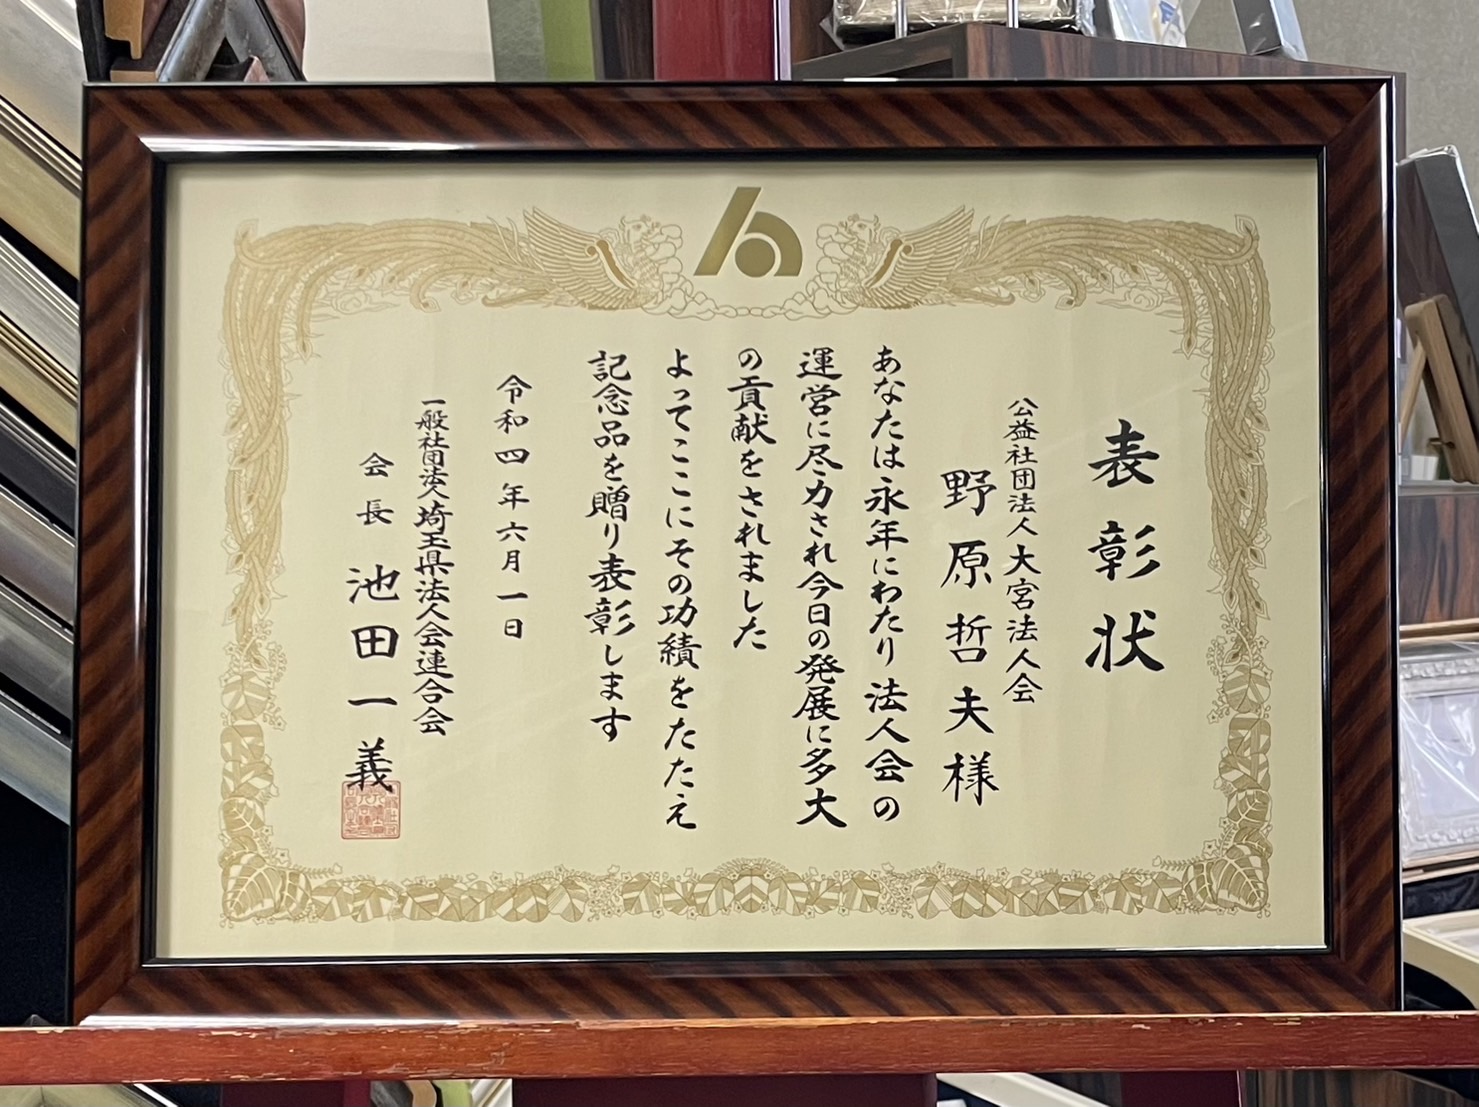 表彰状
公益社団法人大宮法人会
野原哲夫様
あなたは永年にわたり法人会の
運営に尽力され今日の発展に多大
の貢献をされました
よってここにその功績をたたえ
記念品を贈り表彰します
令和四年六月一日
一般社団法人埼玉県法人会連合会
会長 池田一義